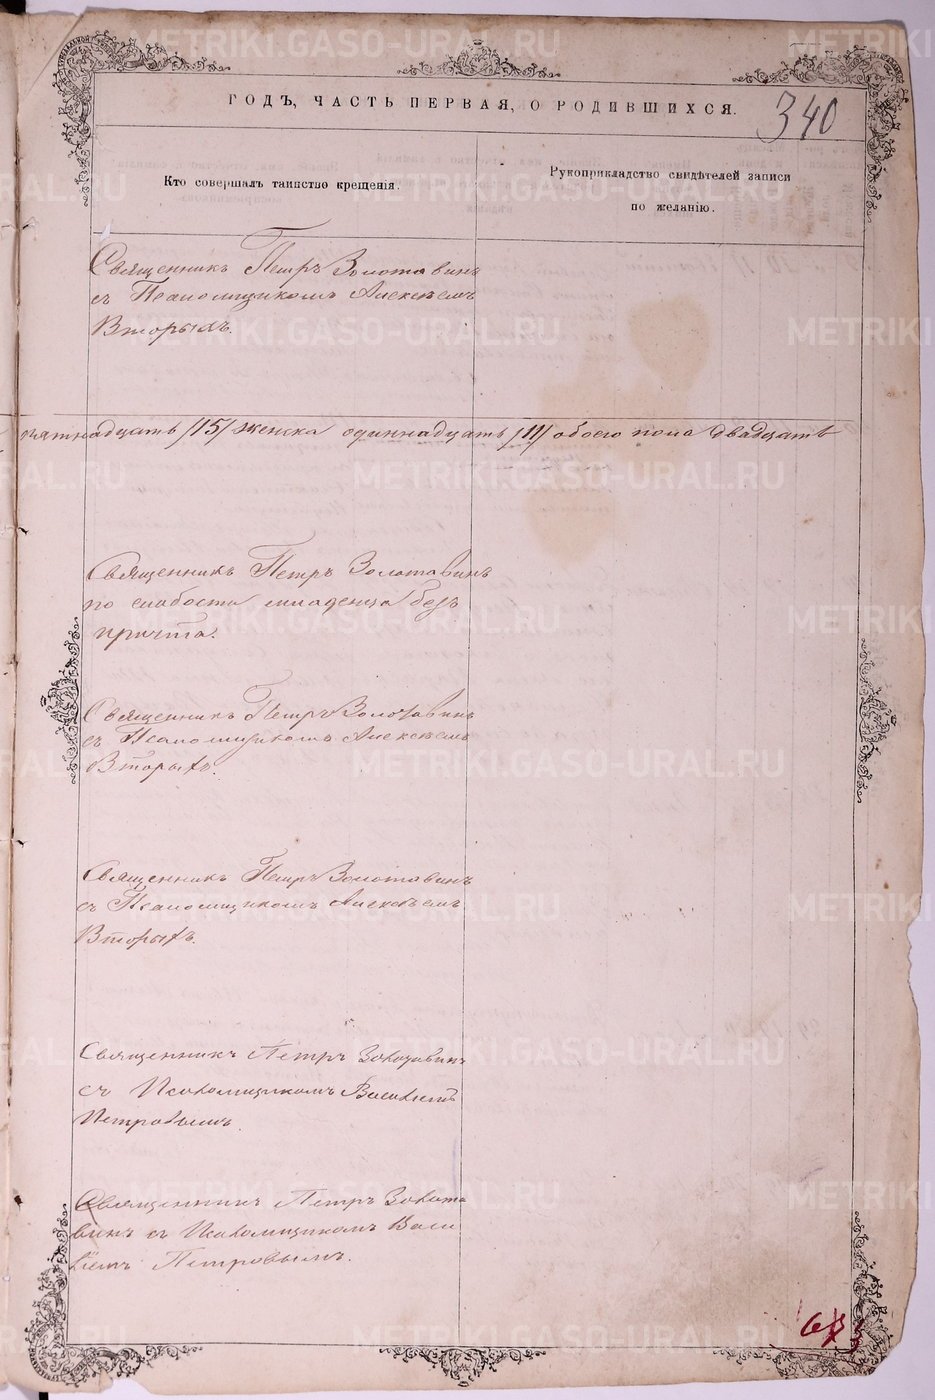 ГОДЪ, ЧАСТЬ ПЕРВАЯ, О РОДИВШИХСЯ.
340
Кто совершалъ таинство крещенія.
Рукоприкладство свидѣтелей записи
по желанію.
Священникъ Петръ Золотавинъ
съ Псаломщикомъ Алексѣемъ
Вторыхъ.
пятнадцать /15/ женска одиннадцать /11/ обоего пола двадцать
Священникъ Петръ Золотавинъ
по слабости младенца безъ
причта.
Священникъ Петръ Золотавинъ
съ Псаломщикомъ Алексѣемъ
Вторыхъ.
Священникъ Петръ Золотавинъ
съ Псаломщикомъ Алексѣемъ
Вторыхъ.
Священникъ Петръ Золотавинъ
съ Псаломщикомъ Василіемъ
Петровымъ.
Священникъ Петръ Золота
винъ съ Псаломщикомъ Васи
ліемъ Петровымъ.
METRIKI.GASO-URAL.RU